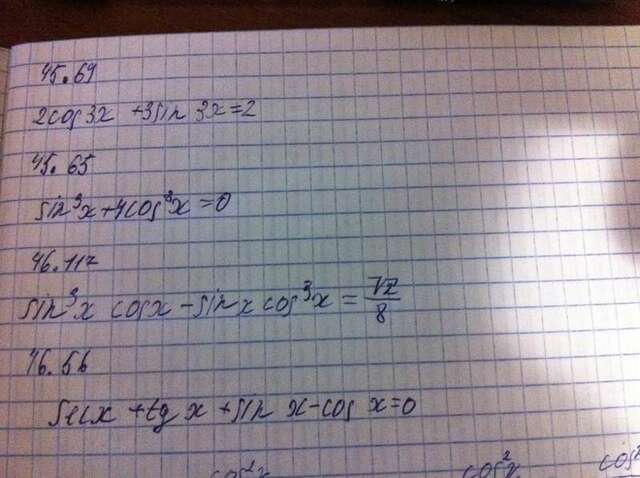 45.69
2cos3x +3sin 3x=2
45.65
sin³x+4cos³x=0
46.112
sin³x cosx - sinx cos³x = √2/8
46.56
secx +tg x +sin x-cos x=0
cos²x cos²x cos²